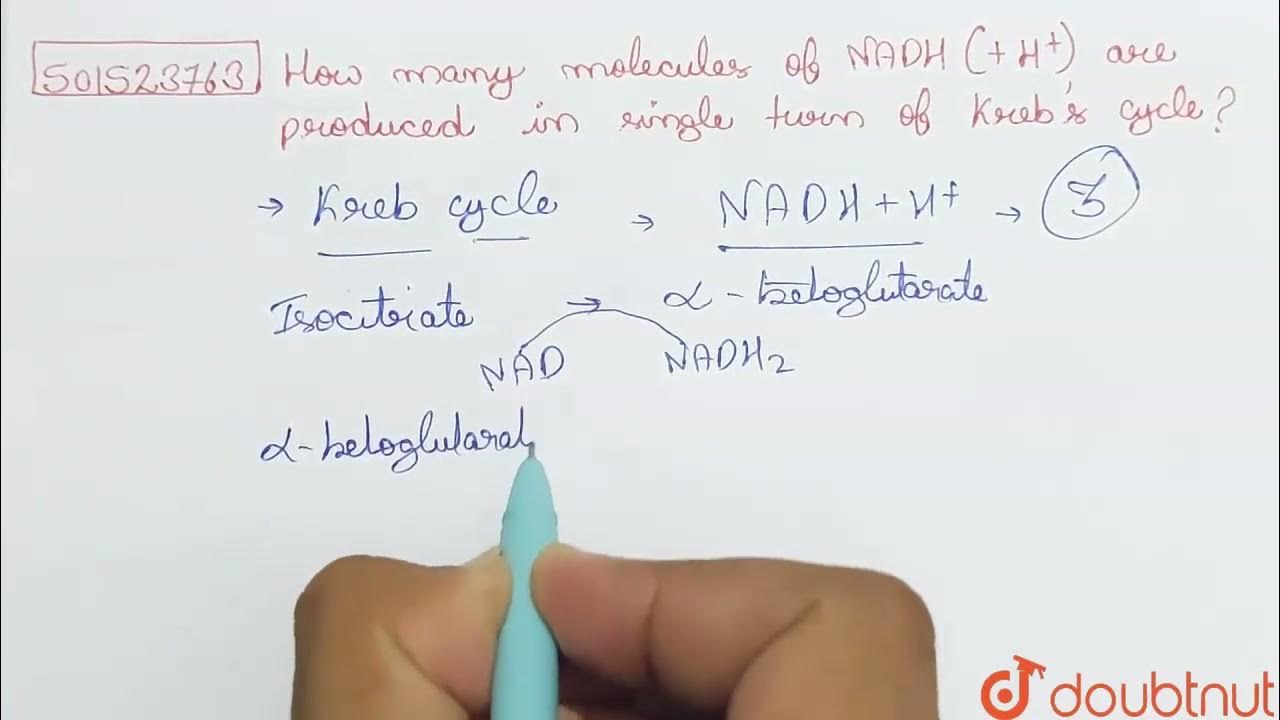 50152.3763 How many molecules of NADH (+ H⁺) are
produced in single turn of Kreb's cycle?
→ Kreb cycle → NADH + H⁺ → 3
Isocitrate → α - ketoglutarate
NAD NADH₂
α - ketoglutarat
doubtnut